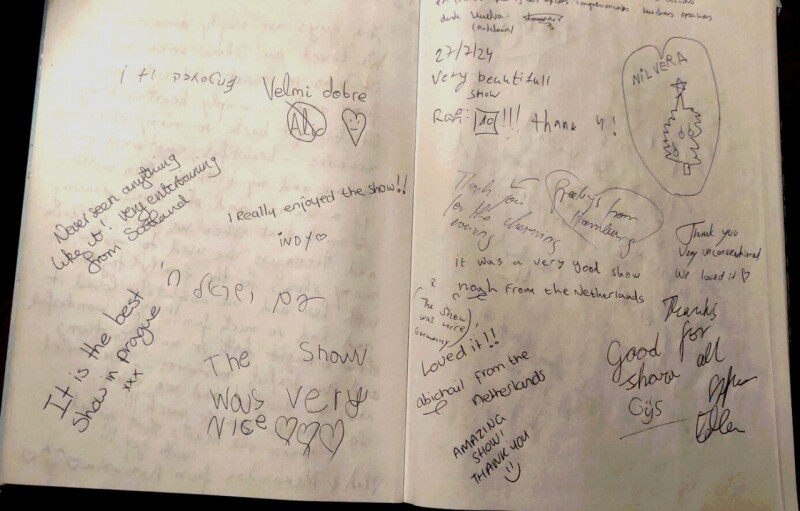 Enjoyed it !
Velmi dobre
Never seen anything
like it! very entertaining
from Scotland
I really enjoyed the show!!
INDY
It is the best
show in prague
xxx
The Show
was very
NICE
duda
27/7/24
Very beautifull
show
10 !!! thank u !
NILVERA
Thank you
for the charming
evening
from
Hamburg
Thank you
Very unconventional
We loved it
it was a very good show
noah from the Netherlands
The show
was nice
Germany
Loved it!!
abichail from the
Netherlands
Thanks
Good for
show all
Gijs
AMAZING
SHOW!
THANK YOU